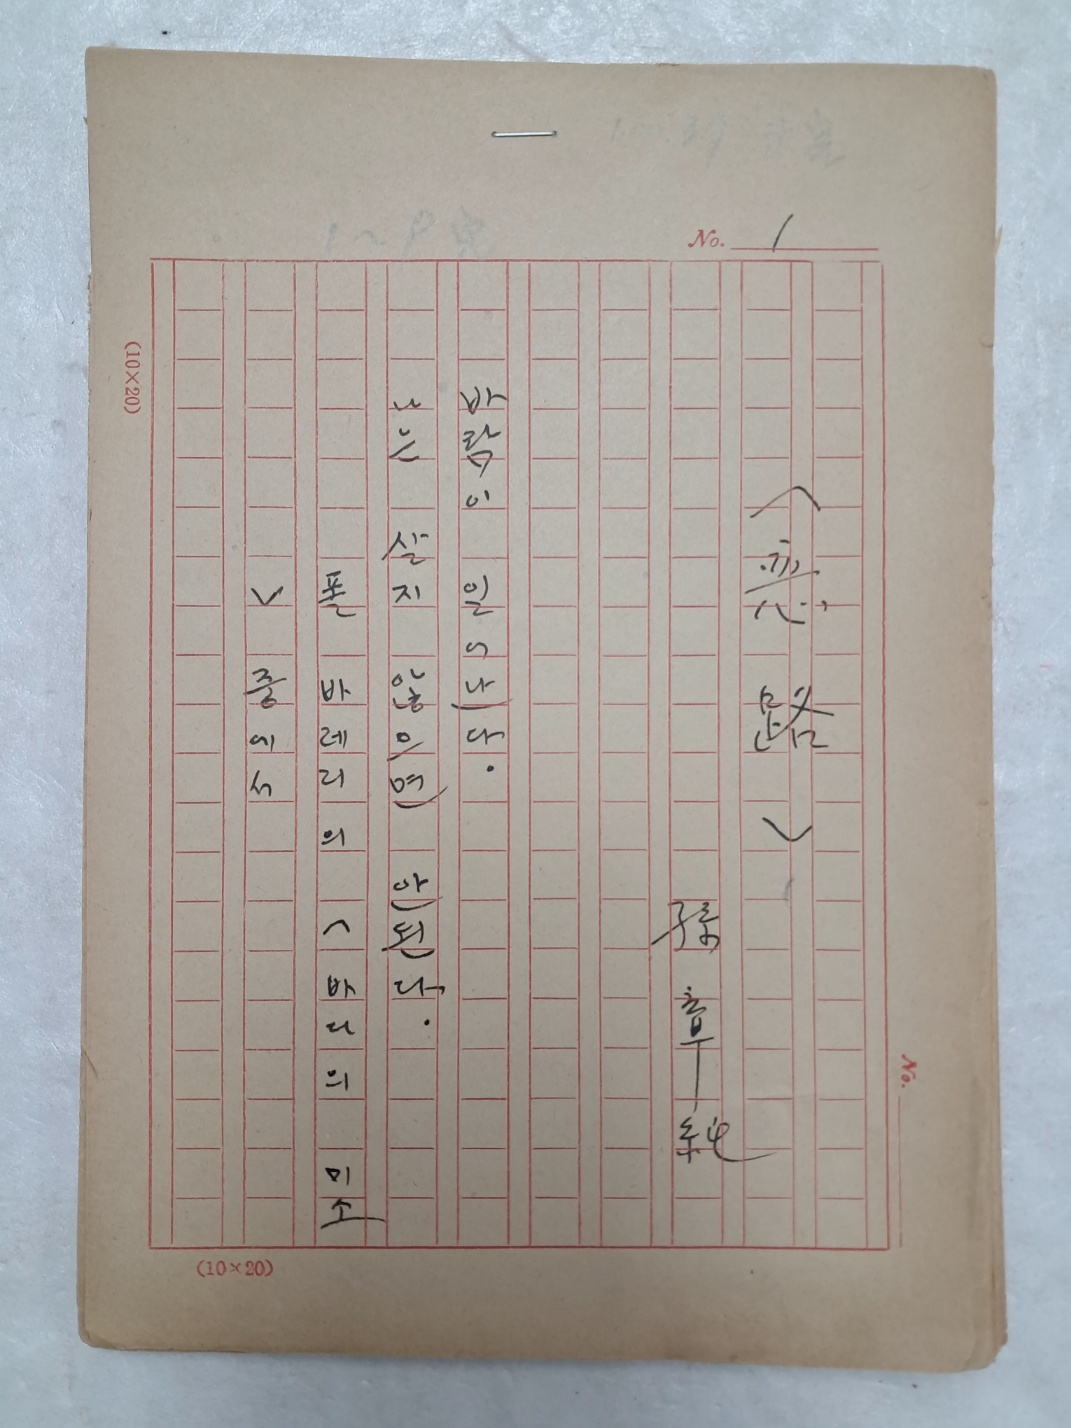 No. 1
〈恋路〉
孫章純
바람이 일어난다.
나는 살지 않으면 안된다.
폴 바레리의 〈바다의 미소
〉 중에서
(10×20)
(10×20)
No.